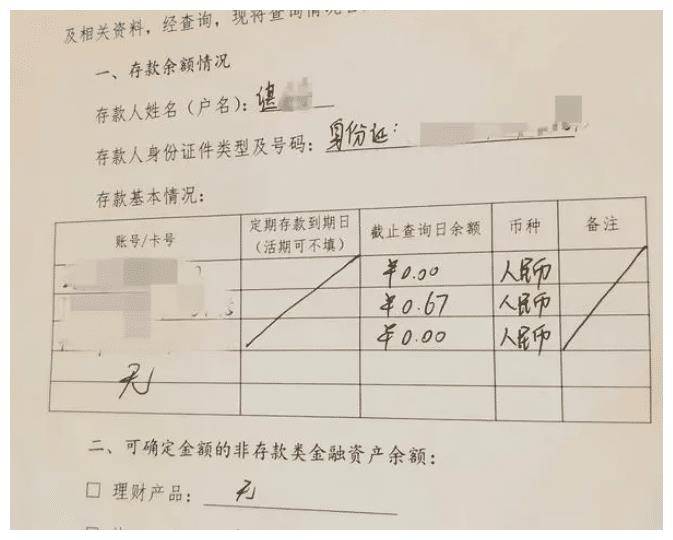 及相关资料，经查询，现将查询情况
一、存款余额情况
存款人姓名（户名）：
存款人身份证件类型及号码：身份证：
存款基本情况：
账号/卡号 定期存款到期日（活期可不填） 截止查询日余额 币种 备注
¥0.00 人民币
¥0.67 人民币
¥0.00 人民币
无
二、可确定金额的非存款类金融资产余额：
□ 理财产品：无